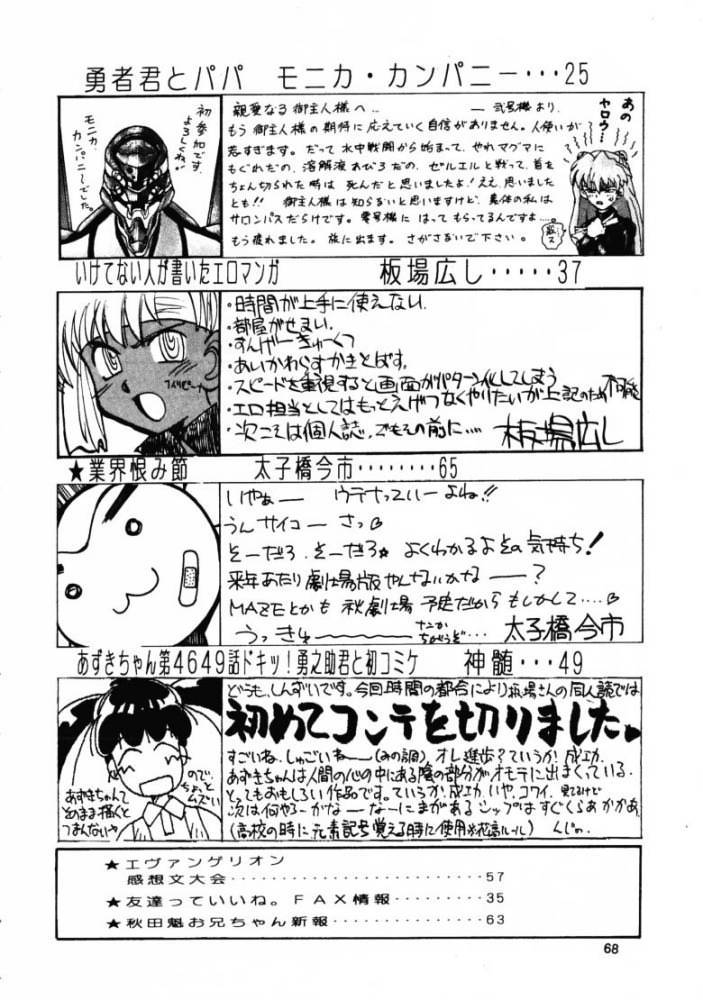 勇者君とパパ　モニカ・カンパニー・・・25
初参加です。
よろしくね!
モニカ.
カンパニーでした。
親愛なる御主人様へ… ー 弐号機より.
もう御主人様の期待に応えていく自信がありません。人使いが
荒すぎます。だって水中戦闘から始まって、やれマグマに
もぐれだの、溶解液あびろだの、ゼルエルと戦って、首を
ちょん切られた時は死んだと思いましたよ!ええ、思いました
とも!! 御主人様は知らないと思いますけど、裏体の私は
サロンパスだらけです。零号機にはってもらってるんですよ…。
もう疲れました。旅に出ます。さがさないで下さい。
あの
ヤロウ…
いけてない人が書いたエロマンガ　板場広し・・・・・37
・時間が上手に使えない.
・部屋がせまい.
・すんげーきゅーくつ
・あいかわらずかきとばす.
・スピードを重視すると画面がパターン化してしまう
・エロ担当としてはもっとえげつなくやりたいが上記のため不可能
・次こそは個人誌。でもその前に……
板場広し
★業界恨み節　太子橋今市・・・・・・・・65
いやぁー ウテナっていーよね!!
うんサイコー さっ
そーだろ、そーだろ★ よくわかるよその気持ち!
来年あたり劇場版やんないかなー?
MAZEとかも秋劇場予定だからもしかして…
うっきゅ～
なにか
ちがうぞ…
太子橋今市
あずきちゃん第4649話ドキッ!勇之助君と初コミケ　神髄・・・49
どうも、しんずいです。今回時間の都合により板場さんの同人誌では
初めてコンテを切りました。
すごいね、しゅごいねー(みの調)オレ進歩?ていうか成功.
あずきちゃんは人間の心の中にある陰の部分がオモテに出まくっている.
とってもおもしろい作品です。ていうか、成功、いや、コワイ、見てるけど
次は何やろーかなーなーにまがあるシップはすぐくらあかかぁ.
(高校の時に元素記号覚える時に使用
んじゃ.
ので、
ちょっと
ムズい
あずきちゃんて
そのまま描くと
つまんないや
★エヴァンゲリオン
感想文大会・・・・・・・・・・・・・・・・・・・・57
★友達っていいね。FAX情報・・・・・・・・・・35
★秋田魁お兄ちゃん新報・・・・・・・・・・・・・63
68